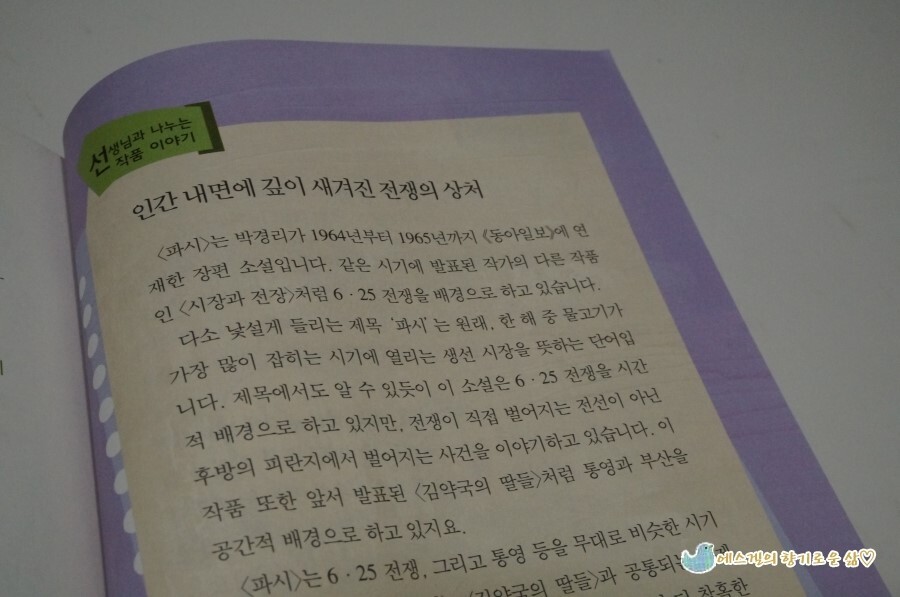 선생님과 나누는
작품 이야기
인간 내면에 깊이 새겨진 전쟁의 상처
〈파시〉는 박경리가 1964년부터 1965년까지 《동아일보》에 연
재한 장편 소설입니다. 같은 시기에 발표된 작가의 다른 작품
인 〈시장과 전장〉처럼 6·25 전쟁을 배경으로 하고 있습니다.
다소 낯설게 들리는 제목 '파시'는 원래, 한 해 중 물고기가
가장 많이 잡히는 시기에 열리는 생선 시장을 뜻하는 단어입
니다. 제목에서도 알 수 있듯이 이 소설은 6·25 전쟁을 시간
적 배경으로 하고 있지만, 전쟁이 직접 벌어지는 전선이 아닌
후방의 피란지에서 벌어지는 사건을 이야기하고 있습니다. 이
작품 또한 앞서 발표된 〈김약국의 딸들〉처럼 통영과 부산을
공간적 배경으로 하고 있지요.
〈파시〉는 6·25 전쟁, 그리고 통영 등을 무대로 비슷한 시기
〈김약국의 딸들〉과 공통되
더 참혹한
에스겔의 향기로운 삶♡